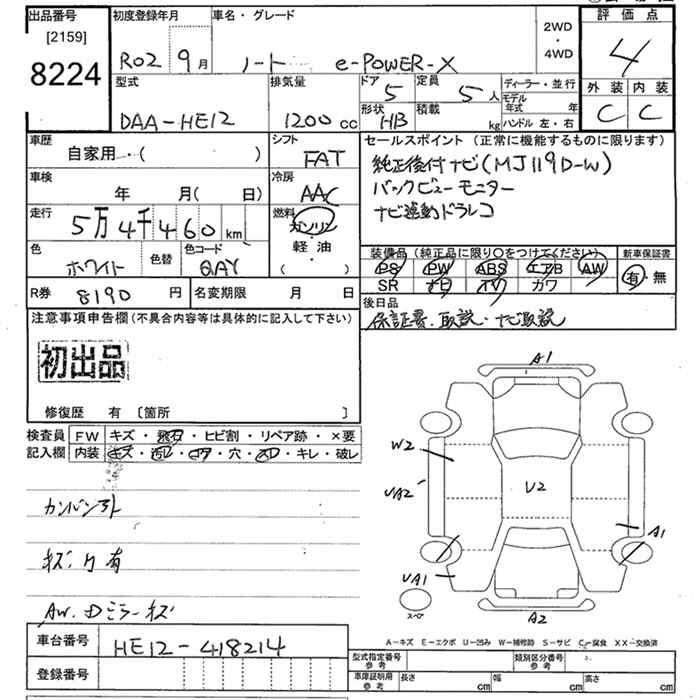 出品番号
[2159]
8224
初度登録年月
R02 9月
車名・グレード
ノート e-POWER-X
2WD
・
4WD
評価点
4
外装 内装
C C
型式
DAA-HE12
排気量
1200cc
ドア
5
定員
5人
形状
HB
積載
kg
ディーラー・並行
モデル年式 年
ハンドル 左・右
車歴
自家用・( )
シフト
FAT
車検
年 月( 日)
冷房
AAC
走行
5万4千460km
燃料
ガソリン
軽油
( ・ )
色
ホワイト
色替
色コード
QAY
セールスポイント (正常に機能するものに限ります)
純正後付ナビ(MJ119D-W)
バックビューモニター
ナビ連動ドラレコ
装備品(純正品に限り〇をつけてください)
PS PW ABS エアB AW
SR ナビ TV カワ
新車保証書
有・無
R券 8190円
名変期限 月 日
後日品
保証書.取説・ナビ取説
注意事項申告欄(不具合内容等は具体的に記入して下さい)
初出品
修復歴 有 [箇所 ]
検査員 FW キズ・飛石・ヒビ割・リペア跡・×要
記入欄 内装 キズ・汚レ・コゲ・穴・スレ・キレ・破レ
カンバン外
キズ.ク有
AW.Dミラーキズ
A1
W2
UA2
U2
A1
UA1
スペア
A2
A-キズ E-エクボ U-凹み W-補修跡 S-サビ C-腐食 XX-交換済
車台番号 HE12-418214
登録番号
型式指定番号
参考
類別区分番号
参考
車庫証明用
参考
長さ cm 幅 cm 高さ cm